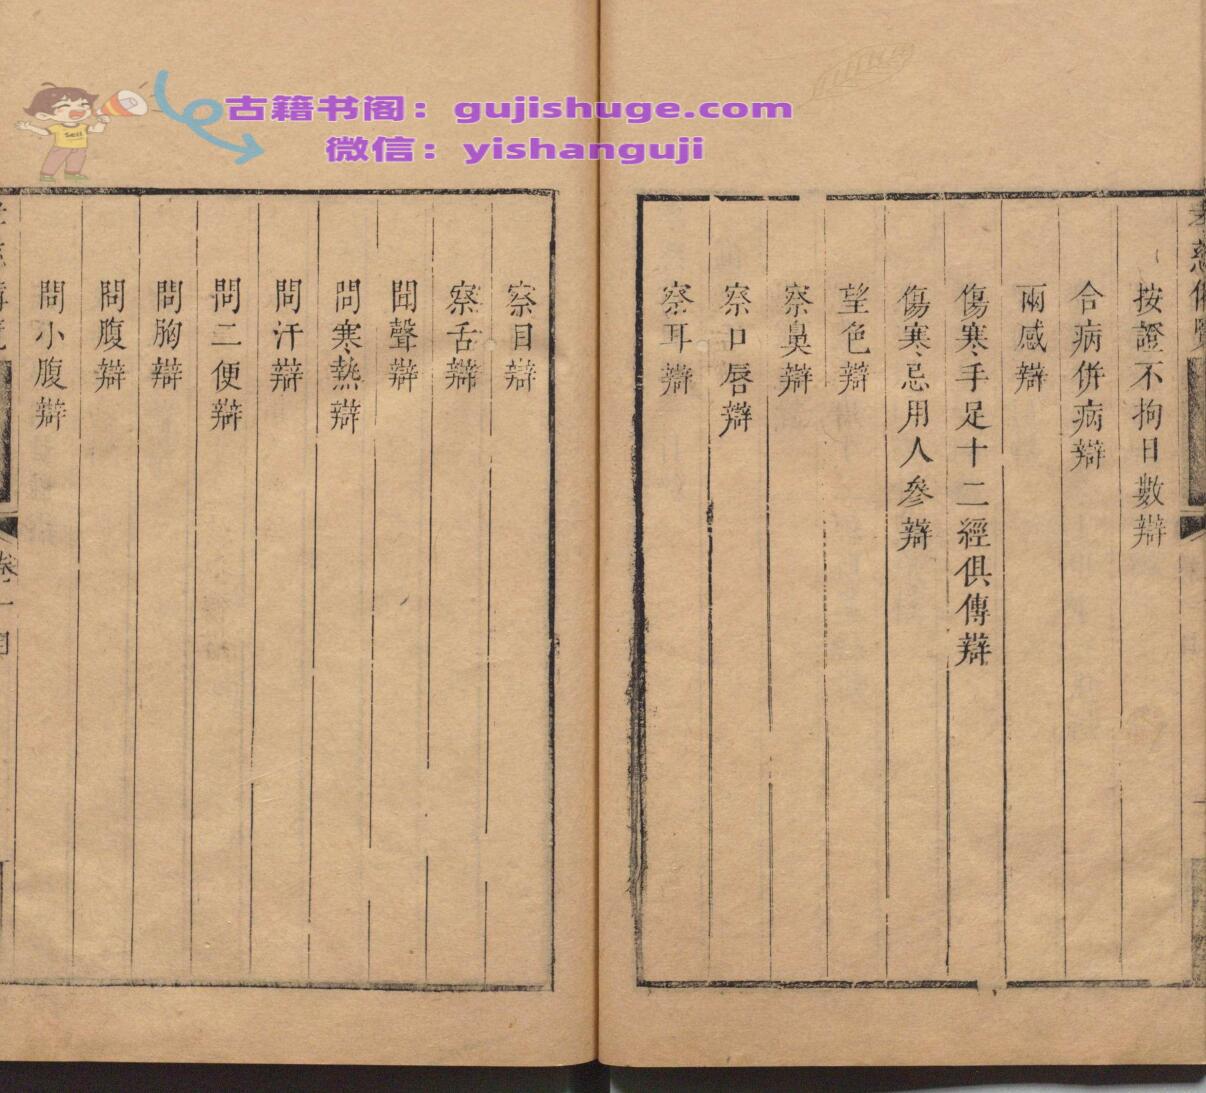 古籍书阁：gujishuge.com
微信：yishanguji
按證不拘日數辯
合病併病辯
兩感辯
傷寒手足十二經俱傳辯
傷寒忌用人參辯
望色辯
察鼻辯
察口唇辯
察耳辯
察目辯
察舌辯
聞聲辯
問寒熱辯
問汗辯
問二便辯
問胸辯
問腹辯
問小腹辯
卷一目